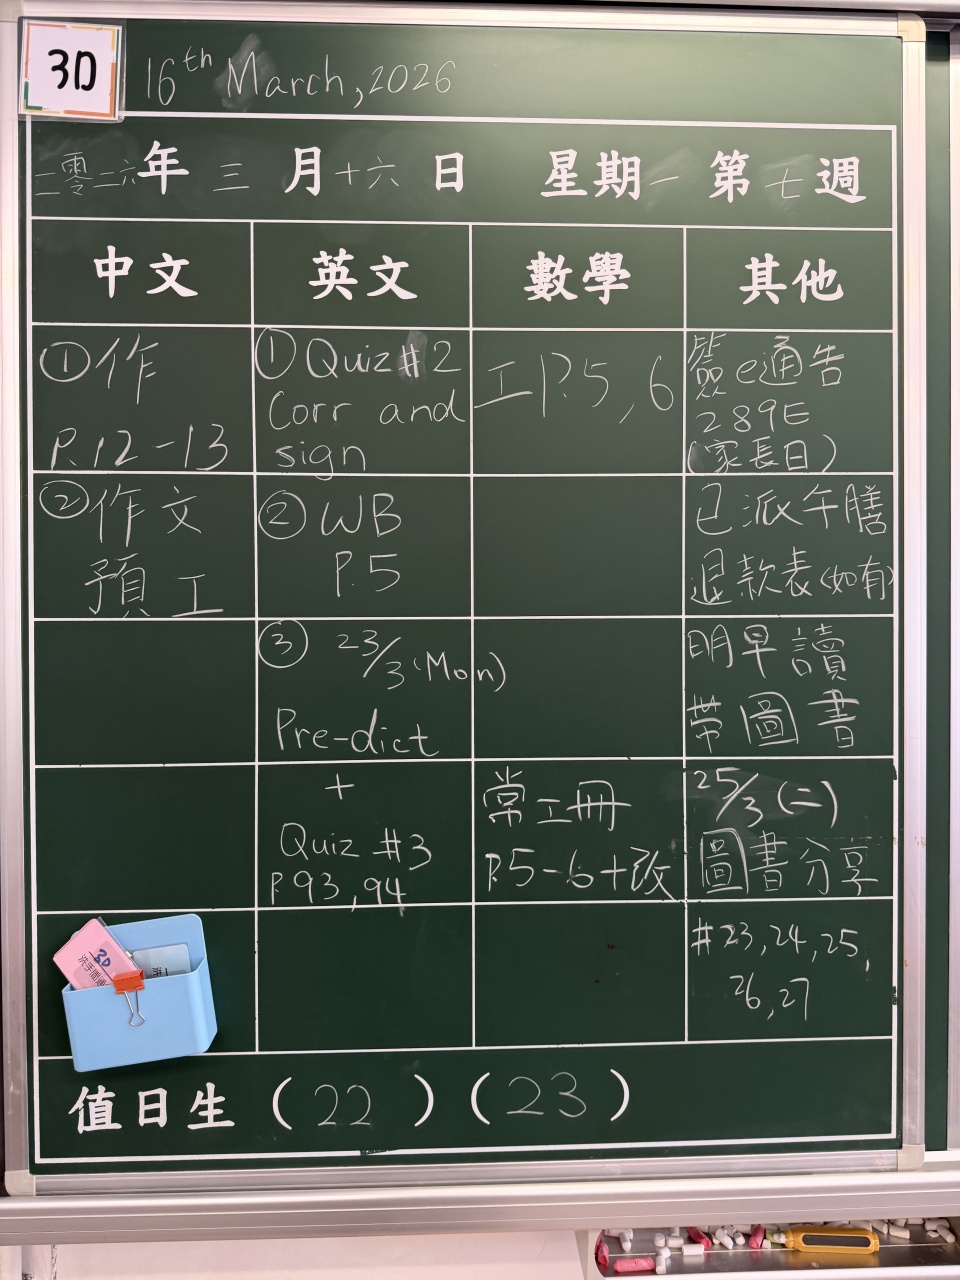 3D
16th March, 2026
二零二六年三月十六日 星期一 第七週
中文
英文
數學
其他
①作
P.12-13
②作文
預工
①Quiz#2
Corr and
sign
②WB
P.5
③ 23/3 (Mon)
Pre-dict
+
Quiz #3
P.93,94
工P.5,6
常工冊
P.5-6+改
簽e通告
289E
(家長日)
已派午膳
退款表(如有)
明早讀
帶圖書
25/3 (二)
圖書分享
#23,24,25,
26,27
3D
值日生 (22) (23)